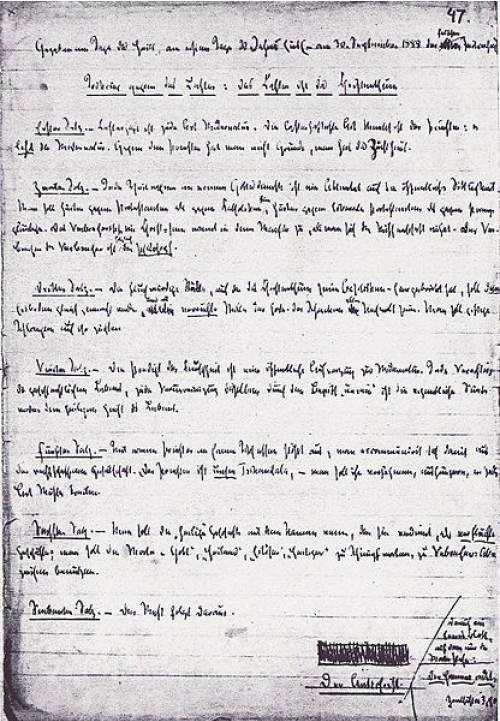 47.
Gegeben am Tage des Heils, am ersten Tage des Jahres Eins (– am 30. September 1888 der falschen Zeitrechnung)
Todkrieg gegen das Laster: das Laster ist das Christenthum
Erster Satz. – Lasterhaft ist jede Art Widernatur. Die lasterhafteste Art Mensch ist der Priester: er
lehrt die Widernatur. Gegen den Priester hat man nicht Gründe, man hat das Zuchthaus.
Zweiter Satz. – Jede Theilnahme an einem Gottesdienste ist ein Attentat auf die öffentliche Sittlichkeit.
Man soll härter gegen Protestanten als gegen Katholiken sein, härter gegen liberale Protestanten als gegen streng-
gläubige. Das Verbrecherische im Christ-sein nimmt in dem Maasse zu, als man sich der Wissenschaft nähert. Der Ver-
brecher der Verbrecher ist folglich der Philosoph.
Dritter Satz. – Die fluchwürdige Stätte, auf der das Christenthum seine Basilisken-Eier gebrütet hat, soll dem
Erdboden gleich gemacht werden und als verruchte Stelle der Erde der Schrecken aller Nachwelt sein. Man soll giftige
Schlangen auf ihr züchten.
Vierter Satz. – Die Predigt der Keuschheit ist eine öffentliche Aufreizung zur Widernatur. Jede Verachtung
des geschlechtlichen Lebens, jede Verunreinigung desselben durch den Begriff „unrein“ ist die eigentliche Sünde
wider den heiligen Geist des Lebens.
Fünfter Satz. – Mit einem Priester an Einem Tisch essen stößt aus: man excommunicirt sich damit aus
der rechtschaffnen Gesellschaft. Der Priester ist unser Tschandala, – man soll ihn verfehmen, aushungern, in jede
Art Wüste treiben.
Sechster Satz. – Man soll die „heilige“ Geschichte mit dem Namen nennen, den sie verdient, als verfluchte
Geschichte; man soll die Worte „Gott“, „Heiland“, „Erlöser“, „Heiliger“ zu Schimpfworten, zu Verbrecher-Ab-
zeichen benutzen.
Siebenter Satz. – Der Rest folgt daraus.
Der Antichrist